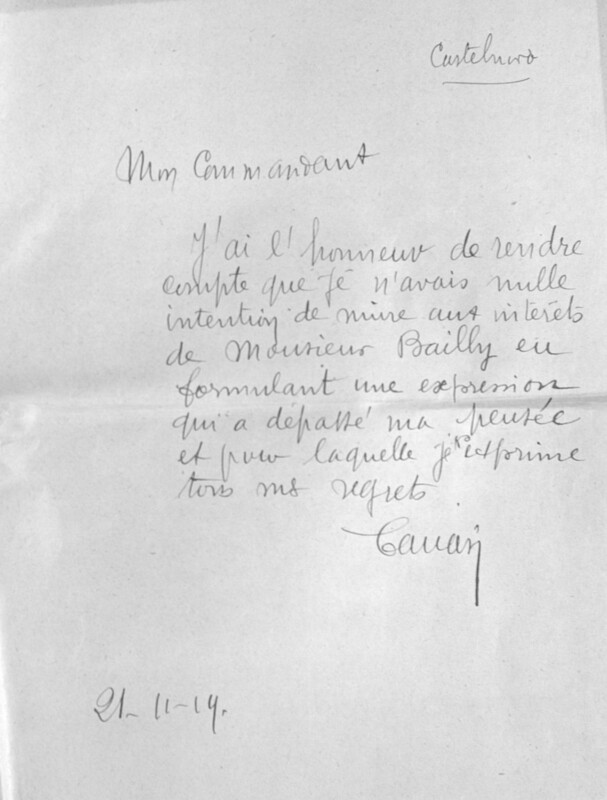 Castelnuovo
Mon Commandant
J'ai l'honneur de rendre
compte que je n'avais nulle
intention de nuire aux intérêts
de Monsieur Bailly en
formulant une expression
qui a dépassé ma pensée
et pour laquelle j'exprime
tous mes regrets
21-11-19.